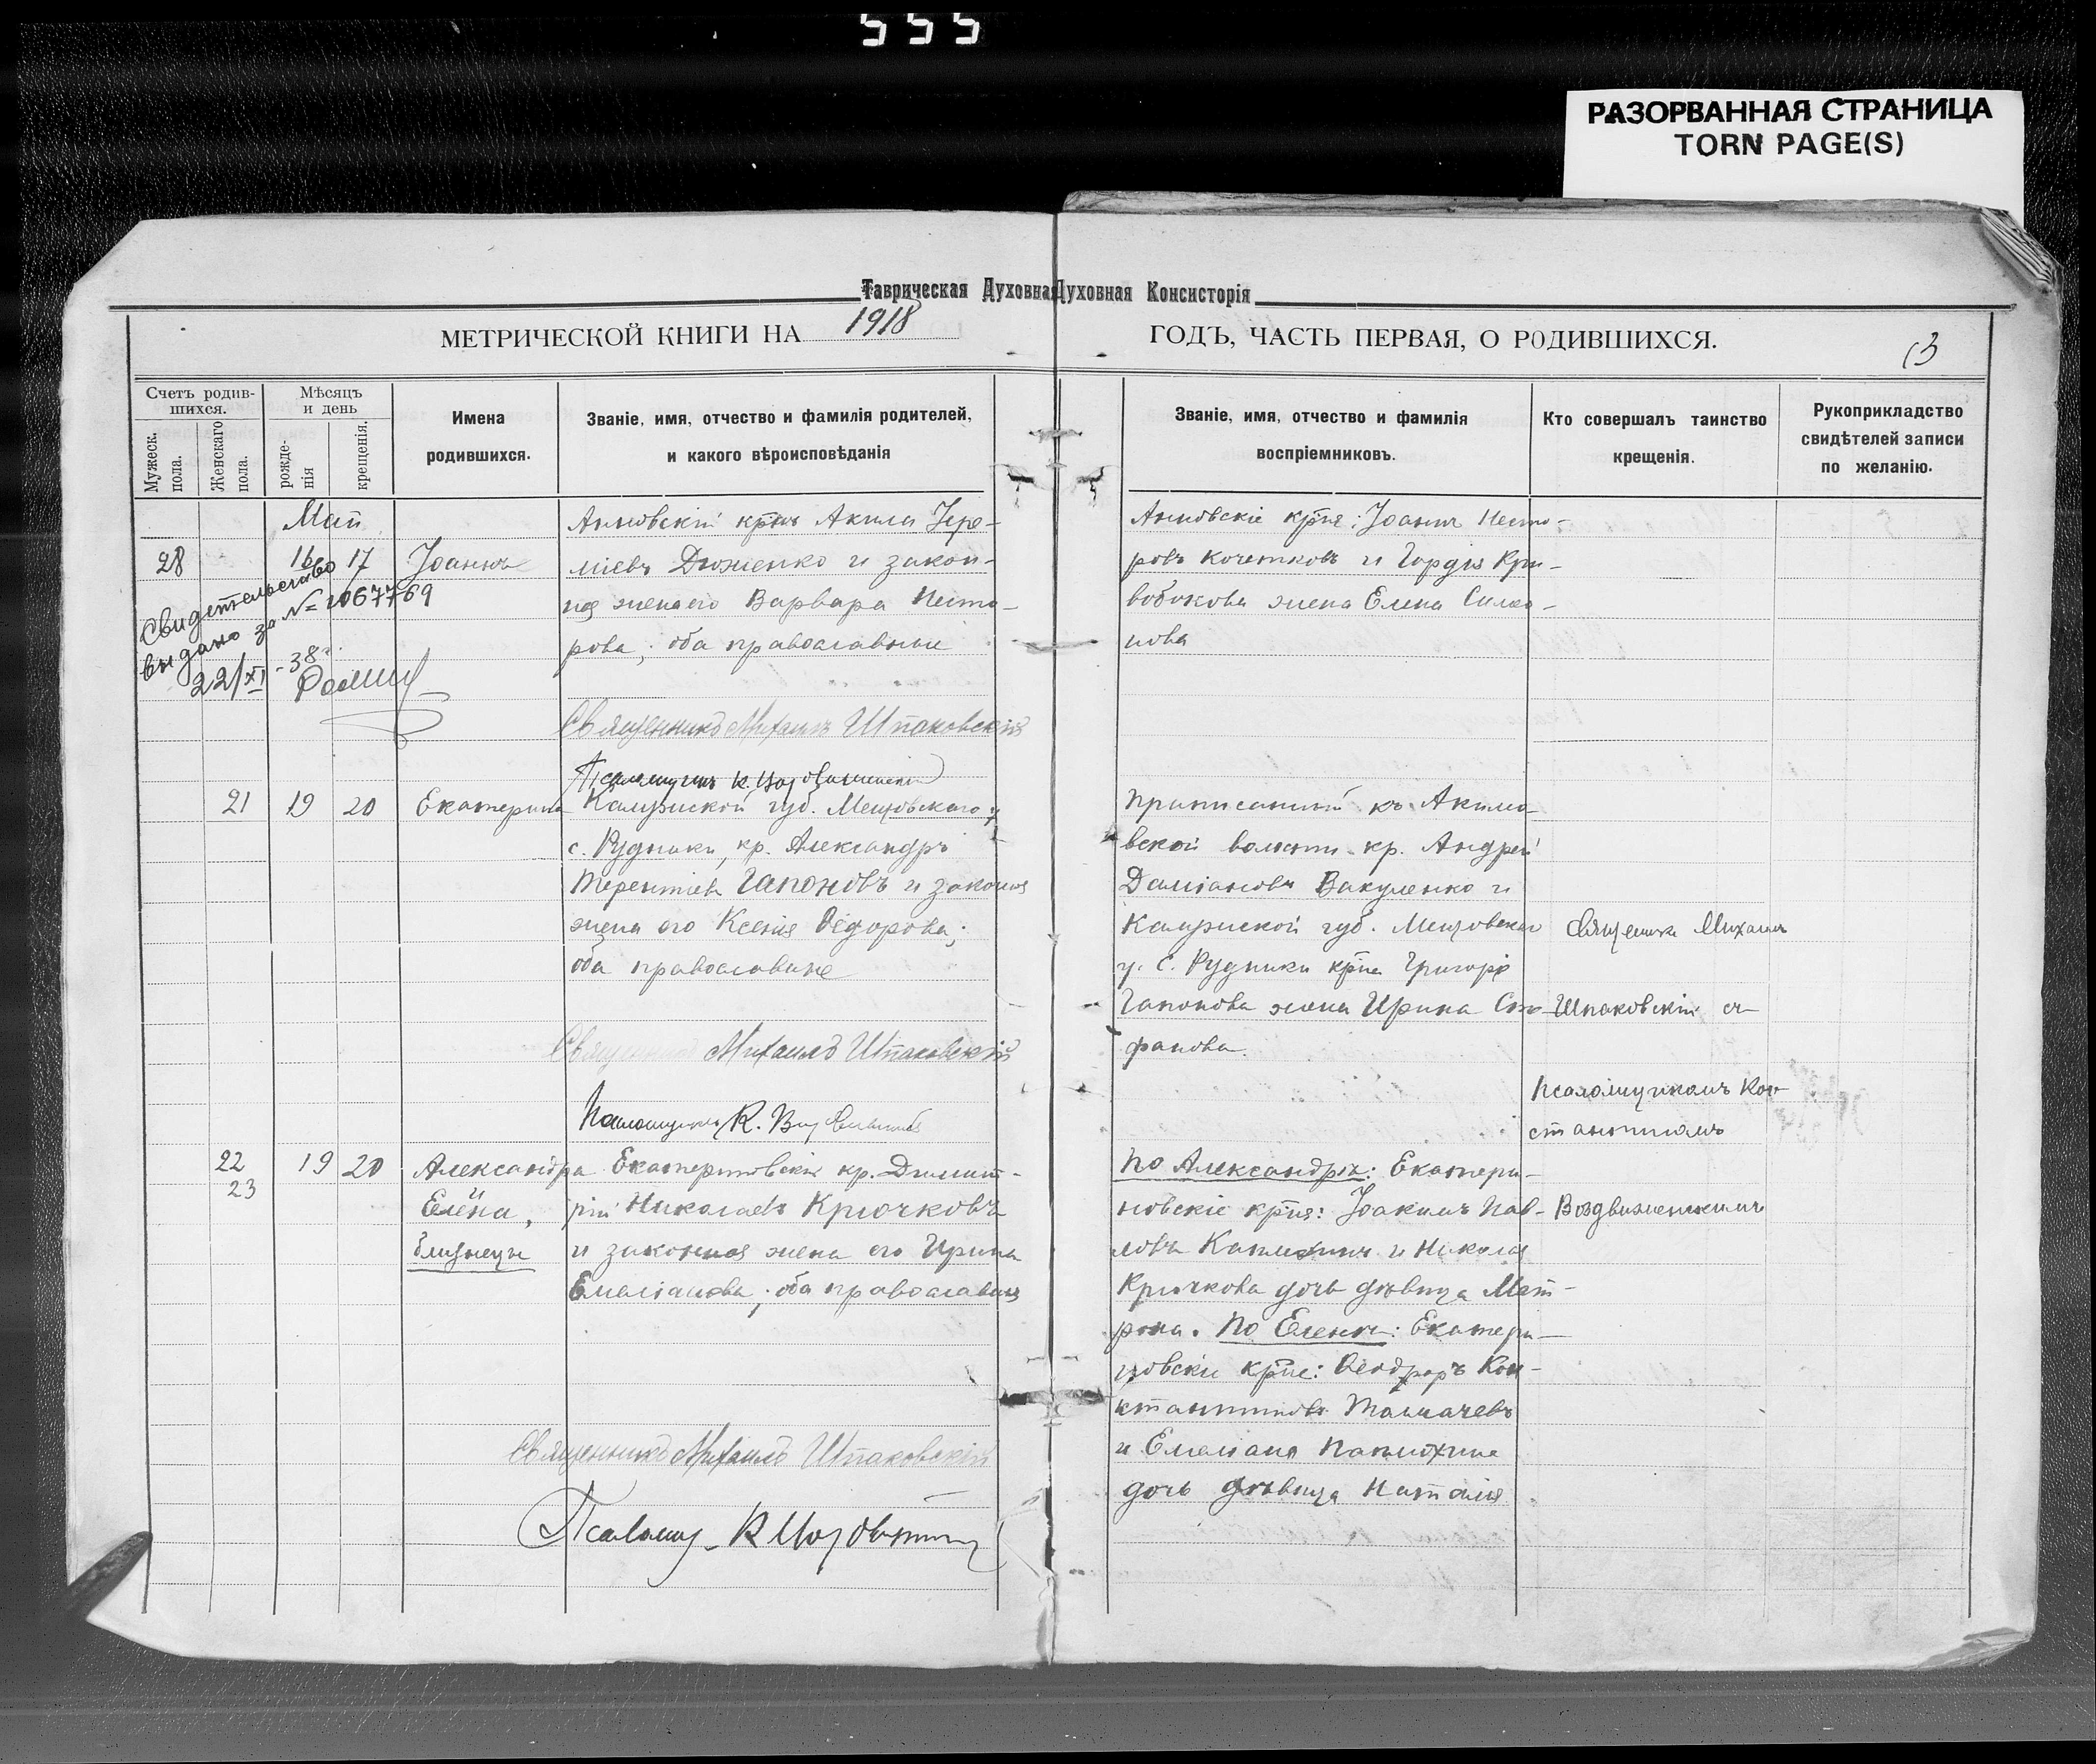 555
РАЗОРВАННАЯ СТРАНИЦА
TORN PAGE(S)
Таврическая Духовная Духовная Консисторія
МЕТРИЧЕСКОЙ КНИГИ НА 1918 ГОДЪ, ЧАСТЬ ПЕРВАЯ, О РОДИВШИХСЯ.
13
Счетъ родив-
шихся.
Мужеск.
пола.
Женскаго
пола.
Мѣсяцъ
и день
рожде-
нія
крещенія.
Имена
родившихся.
Званіе, имя, отчество и фамилія родителей,
и какого вѣроисповѣданія
Званіе, имя, отчество и фамилія
воспріемниковъ.
Кто совершалъ таинство
крещенія.
Рукоприкладство
свидѣтелей записи
по желанію.
Май
28 16 17 Іоаннъ
Свидетельство
выдано за №
22/XI - 38 г.
Анновскій Акила Іере-
міевъ Дюженко и закон-
ная жена его Варвара Несто-
рова; оба православные
Священникъ Михаилъ Шпаковскій
Анновскіе кр-не: Іоаннъ Несто-
ровъ Кочетковъ и Гордія Кри-
вобокова жена Елена
нова
21 19 20 Екатерина
Калужской губ. Мещовскаго у.
с. Рудники, кр. Александръ
Терентіевъ Гапоновъ и законая
жена его Ксенія Ѳедорова;
оба православные
Священникъ Михаилъ Шпаковскій
Псаломщикъ К.
Приписанный къ Акимо-
вской волости кр. Андрей
Даміановъ Вакуленко и
Калужской губ. Мещовскаго
у. с. Рудники кр-на Григорія
Гапонова жена Ирина Сте-
фанова.
Священникъ Михаилъ
Шпаковскій съ
псаломщикомъ Кон-
стантиномъ
Воздвиженскимъ
22 19 20 Александра
23
Елена,
близнецы
Екатериновскій кр. Димит-
рій Николаевъ Крючковъ
и законная жена его Ирина
Емеліанова; оба православные
Священникъ Михаилъ Шпаковскій
По Александрѣ: Екатери-
новскіе кр-не: Іоакимъ Пав-
ловъ и Николая
Крючкова дочь дѣвица Мат-
рона. По Еленѣ: Екатери-
новскіе кр-не: Ѳеодоръ Кон-
стантиновъ Толмачевъ
и Емеліана
дочь дѣвица Наталія